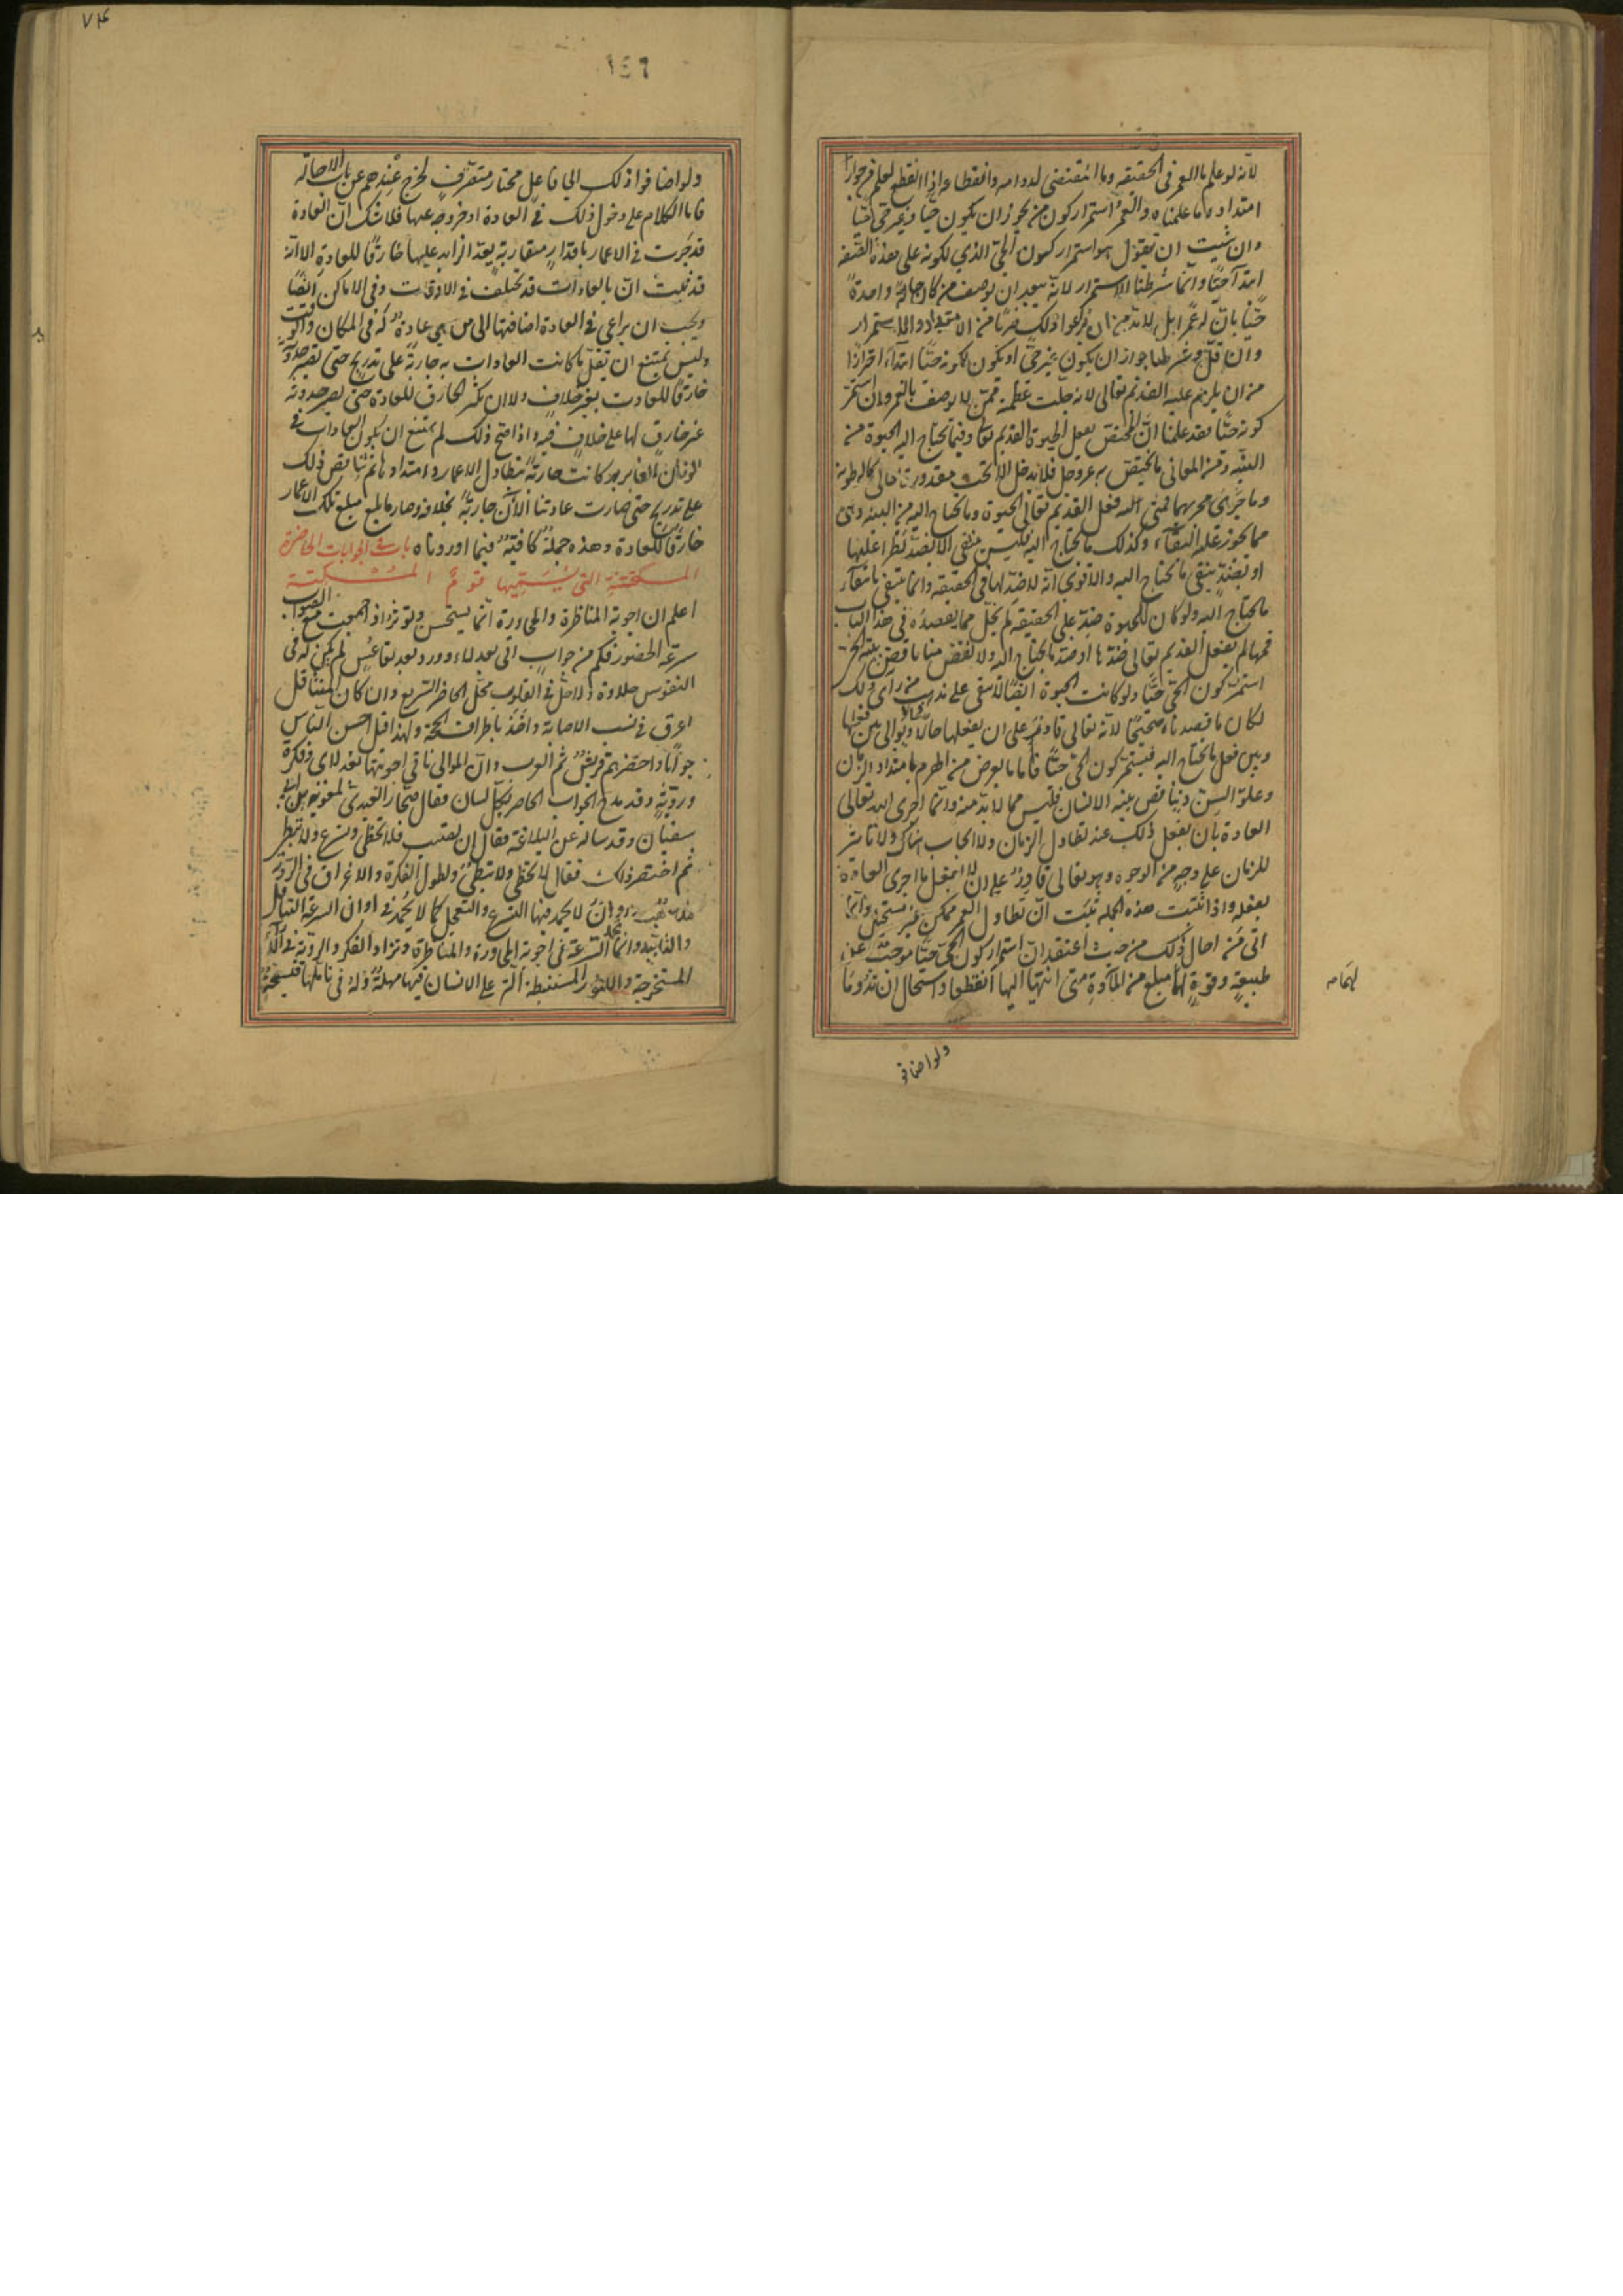 لانه لو علم ما العمر في الحقيقة وما المقتضي لدوامه وانقطاعه اذا انقطع لعلم من جواز
امتداده ما علمناه والعمر استمرار كون من يجوز ان يكون حيا وغير حي حيا
وان شئت ان تقول هو استمرار كون الحي الذي لكونه على هذه الصفة
ابتدآ حيا وانما شرطنا الاستمرار لانه يبعد ان يوصف من كان حالة واحدة
حيا بان له عمرا بل لابد من ان يراعوا ذلك ضربا من الامتداد والاستمرار
وان قل وشرطنا جواز ان يكون غير حي او يكون لكونه حيا ابتداء احترازا
من ان يلزم عليه القديم تعالى لانه جلت عظمته ممن لا يوصف بالعمر وان استمر
كونه حيا فقد علمنا ان المختص بفعل الحيوة القديم تعا وفيما تحتاج اليه الحيوة من
البنية ومن المعاني ما يختص به عز وجل فلا يدخل الا تحت مقدوره تعالى كالرطوبة
وما جرى مجريها فمتى فعل القديم تعالى الحيوة وما تحتاج اليه من البنية وهي
مما يجوز عليه البقاء وكذلك ما تحتاج اليه فليس ينتفي الا بضد يطرأ عليها
او بضد ينفي ما تحتاج اليه والاقوى انه لا ضد لها في الحقيقة وانما ينتفي بانتفاء
ما تحتاج اليه ولو كان للحيوة ضد على الحقيقة لم يخل مما يقصده في هذا الباب
فمهما لم يفعل القديم تعالى ضدها او ضد ما تحتاج اليه ولا نقض منا ناقض بنية الحي
استمر كون الحي حيا ولو كانت الحيوة ايضا لا تبقى على مذهب من راى ذلك
لكان ما قصدناه صحيحا لانه تعالى قادر على ان يفعلها حالا فحالا ويوالي بين فعلها
وبين فعل ما تحتاج اليه فيستمر كون الحي حيا فاما ما يعرض من الهرم بامتداد الزمان
وعلو السن وتناقص بنية الانسان فليس مما لابد منه وانما اجرى الله تعالى
العادة بان يفعل ذلك عند تطاول الزمان ولا ايجاب هناك ولا تاثير
للزمان على وجه من الوجوه وهو تعالى قادر على ان لا يفعل ما اجرى العادة
بفعله واذا ثبتت هذه الجملة ثبت ان تطاول العمر ممكن غير مستحيل وانما
اتى من احال ذلك من حيث اعتقد ان استمرار كون الحي حيا موجب عن
طبيعة وقوة لهما مبلغ من المادة متى انتهيا اليها انقطعا واستحال ان تدوما
ولو اضافو
١٤٦
ولو اضافوا ذلك الى فاعل مختار متصرف لخرج عندهم عن باب الاحالة
فاما الكلام على دخول ذلك في العادة او خروجه عنها فلا شك ان العادة
قد جرت في الاعمار باقدار متقاربة يعد الزايد عليها خارقا للعادة الا انه
قد ثبت ان العادات قد تختلف في الاوقات وفي الاماكن ايضا
ويجب ان يراعى في العادة اضافتها الى من هي عادة له في المكان والوقت
وليس يمتنع ان يقل ما كانت العادات به جارية على تدريج حتى يصير حدوثه
خارقا للعادت بغير خلاف ولا ان يكثر الخارق للعادة حتى يصير حدوثه
غير خارق لها على خلاف فيه واذا صح ذلك لم يمتنع ان يكون العادات في
الزمان الغابر كانت جارية بتطاول الاعمار وامتدادها ثم تناقص ذلك
على تدريج حتى صارت عادتنا الآن جارية بخلافه وصار ما بلغ مبلغ تلك الاعمار
خارقا للعادة وهذه جملة كافية فيما اوردناه باب في الجوابات الحاضرة
المسكتة التي يسميها قوم المسكتة
اعلم ان اجوبة المناظرة والمحاورة انما يستحسن ويوثر اذ اجمعت مع الصواب
سرعة الحضور فكم من جواب اتى بعد لاء وورد بعد تقاعس لم يكن له في
النفوس حلاوة ولا حل في القلوب محل الحاضر السريع وان كان المتثاقل
اعرق في نسب الاصابة واخذ باطراف الحجة ولهذا قيل احسن الناس
جوابا واحضرهم قريش ثم العرب وان الموالي تاتي اجوبتها بعد لاى وفكرة
وروية وقد مدح الجواب الحاضر بكل لسان فقال صحار العبدي لمعوية بن ابي
سفيان وقد ساله عن البلاغة فقال ان يصيب فلا يخطي ويسرع ولا يبطي
ثم اختصر ذلك فقال لا يخطي ولا يبطئ ولطول الفكرة والاغراق في الروية
مذاهب واوان لا يحمد فيها التسرع والتعجل كما لا يحمد في اوان السرعة التثاقل
والتايد وانما يحمد السرعة في اجوبة المحاورة والمناظرة وتراد الفكر والروية في الآراء
المستخرجة والامور المستنبطة التي على الانسان فيها مهلة وله في تاملها فسحة